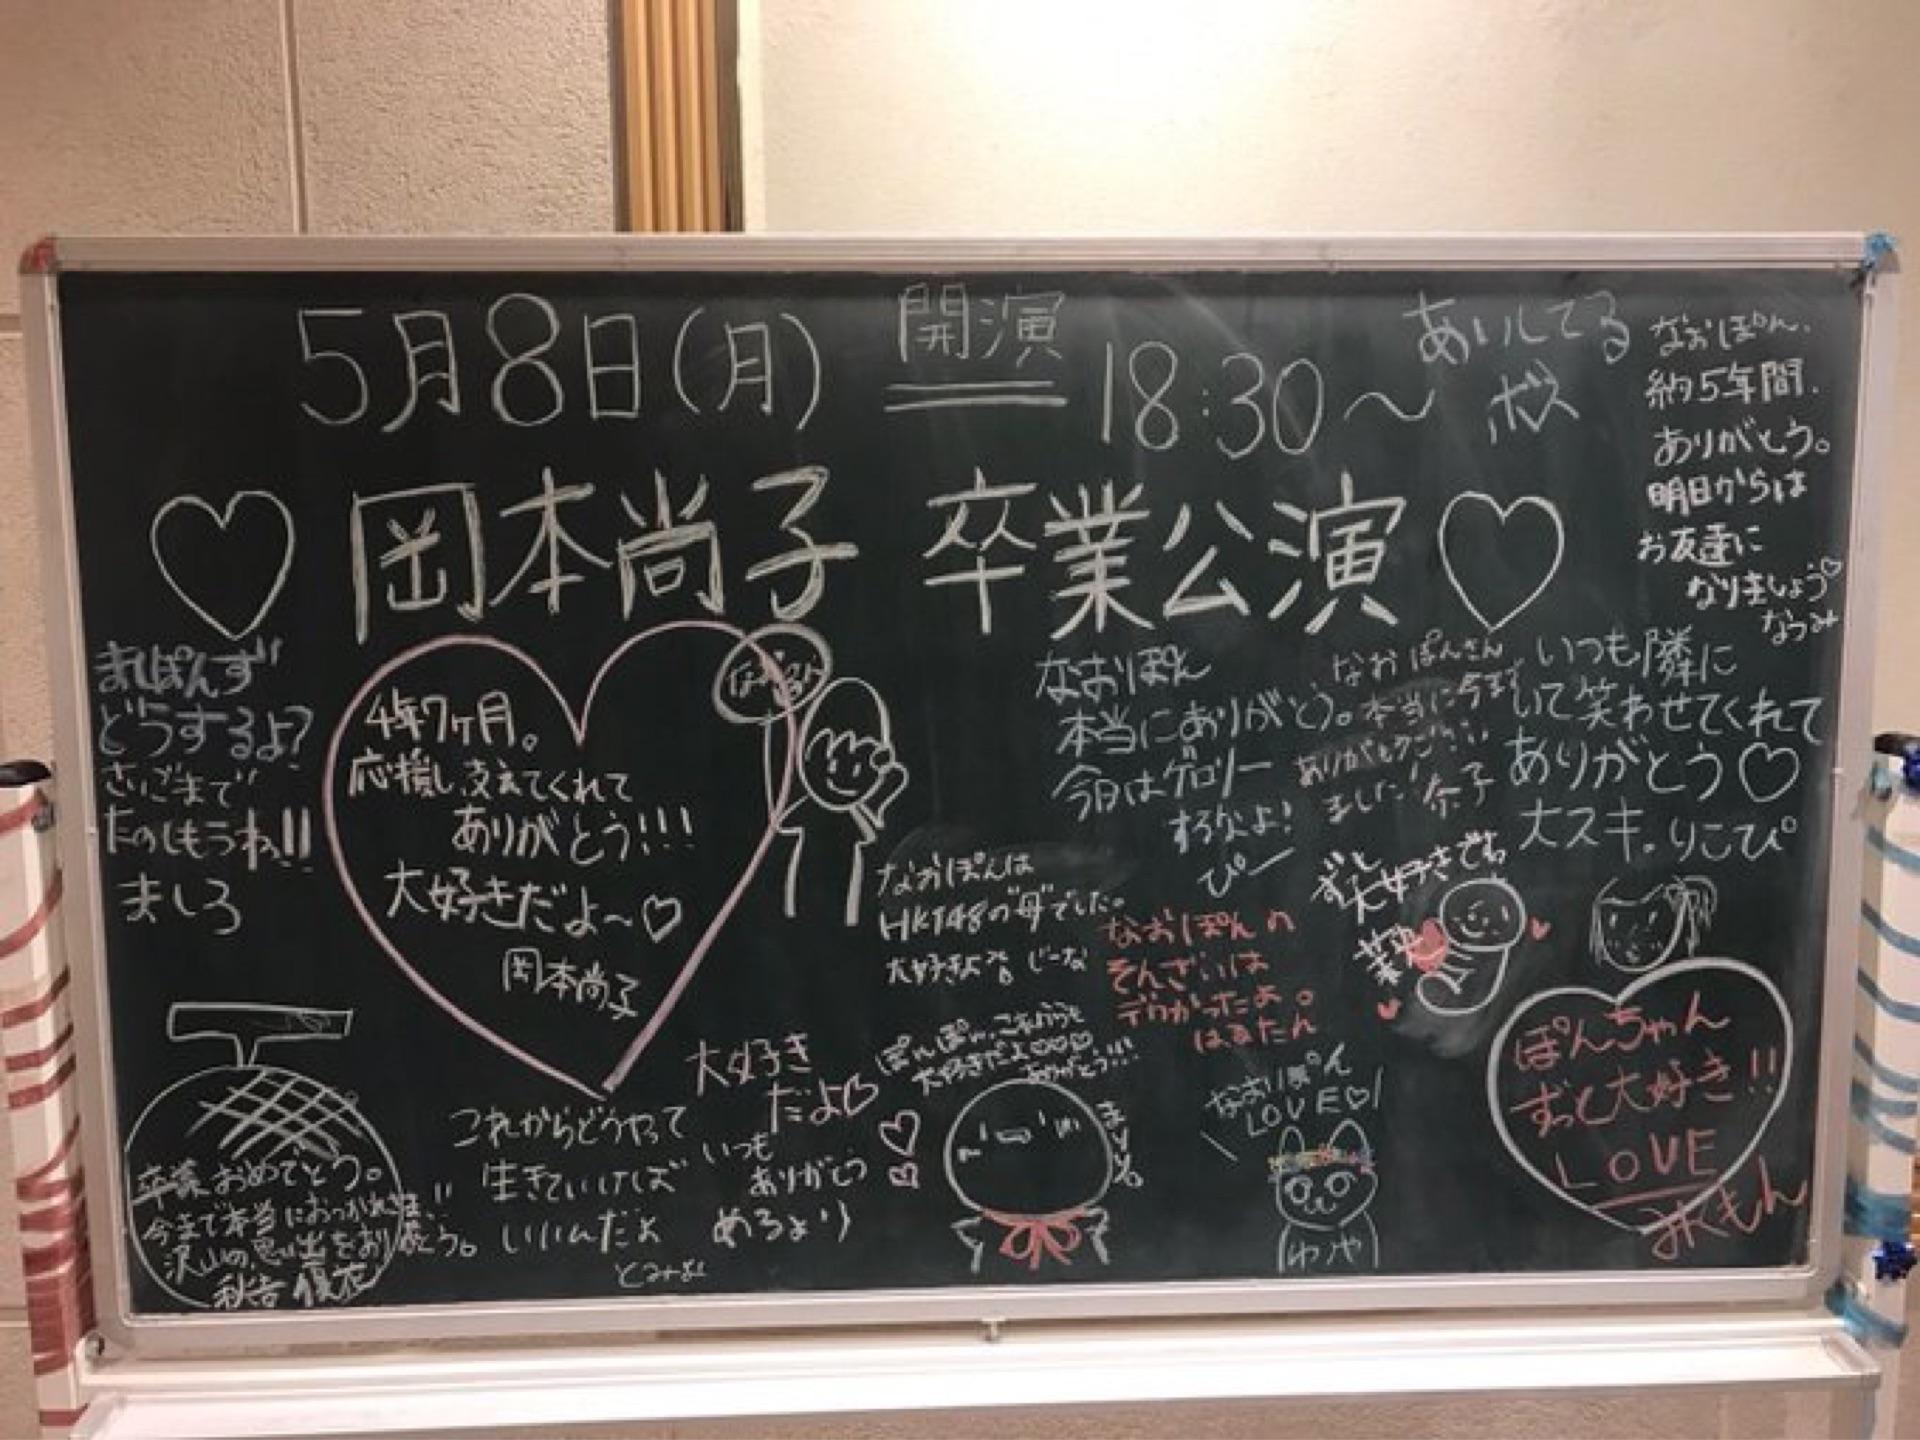 5月8日(月) 開演 18:30〜
岡本尚子 卒業公演
あいしてる
ボス
なおぽん、
約5年間、
ありがとう。
明日からは
お友達に
なりましょう♡
なつみ
まぱぽんず
どうするよ?
さいごまで
たのしもうね!!
ましろ
4年7ヶ月。
応援し、支えてくれて
ありがとう!!!
大好きだよ〜♡
岡本尚子
なおぽん
なおぽん
本当にありがとう。
今日はゲロリー
するなよ!
ぴー
なおぽんさん
本当に今まで
ありがとうござい
ました! 奈子
いつも隣に
いて笑わせてくれて
ありがとう♡
大スキ。りこぴ
なおぽんは
HKT48の母でした。
大好きよ じーな
なおぽんの
そんざいは
デカかったよ。
はるたん
ずっと
大好きです
ぽんちゃん
ずっと大好き!!
LOVE
みくもん
卒業おめでとう。
今まで本当におつかれさま!!
沢山の思い出をありがとう。
秋吉優花
これからどうやって
生きていけば
いいんだよ
とみお
大好き
だよ♡
いつも
ありがとう
めるより
ぽんぽん、これからも
大好きだよ♡♡♡
ありがとう!!!
まりりん
なおぽん
LOVE♡